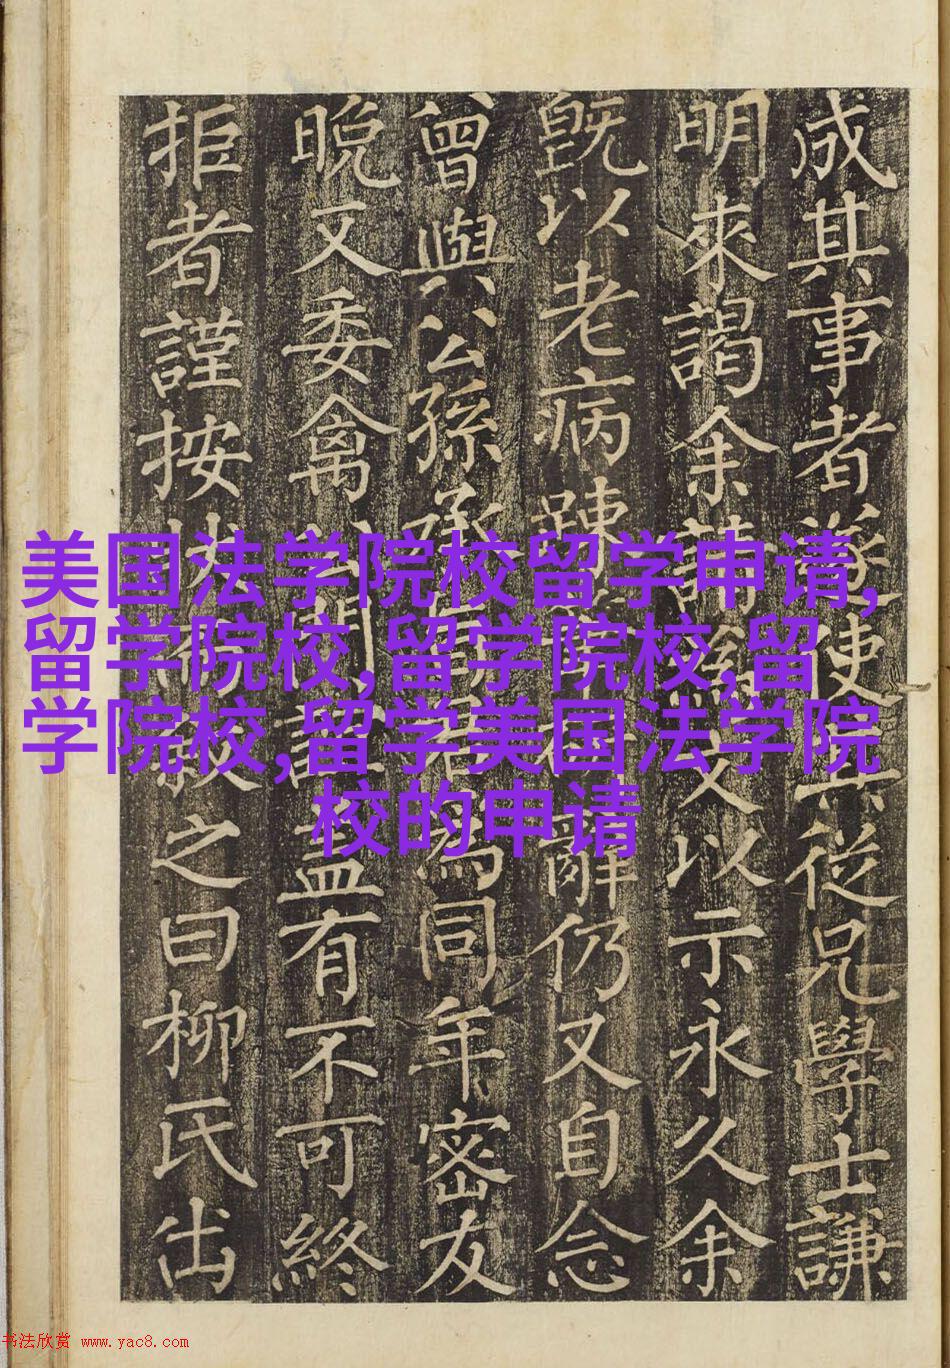 成其事者遂使其從兄學士謙
明來謁余請文以示永久余
既以老病踈辭仍又自念
曾與公孫承為同年密友
晚又委禽盖有不可終
拒者謹按之曰柳氏出
美国法学院校留学申请,
留学院校,留学院校,留
学院校,留学美国法学院
校的申请
书法欣赏 www.yac8.com